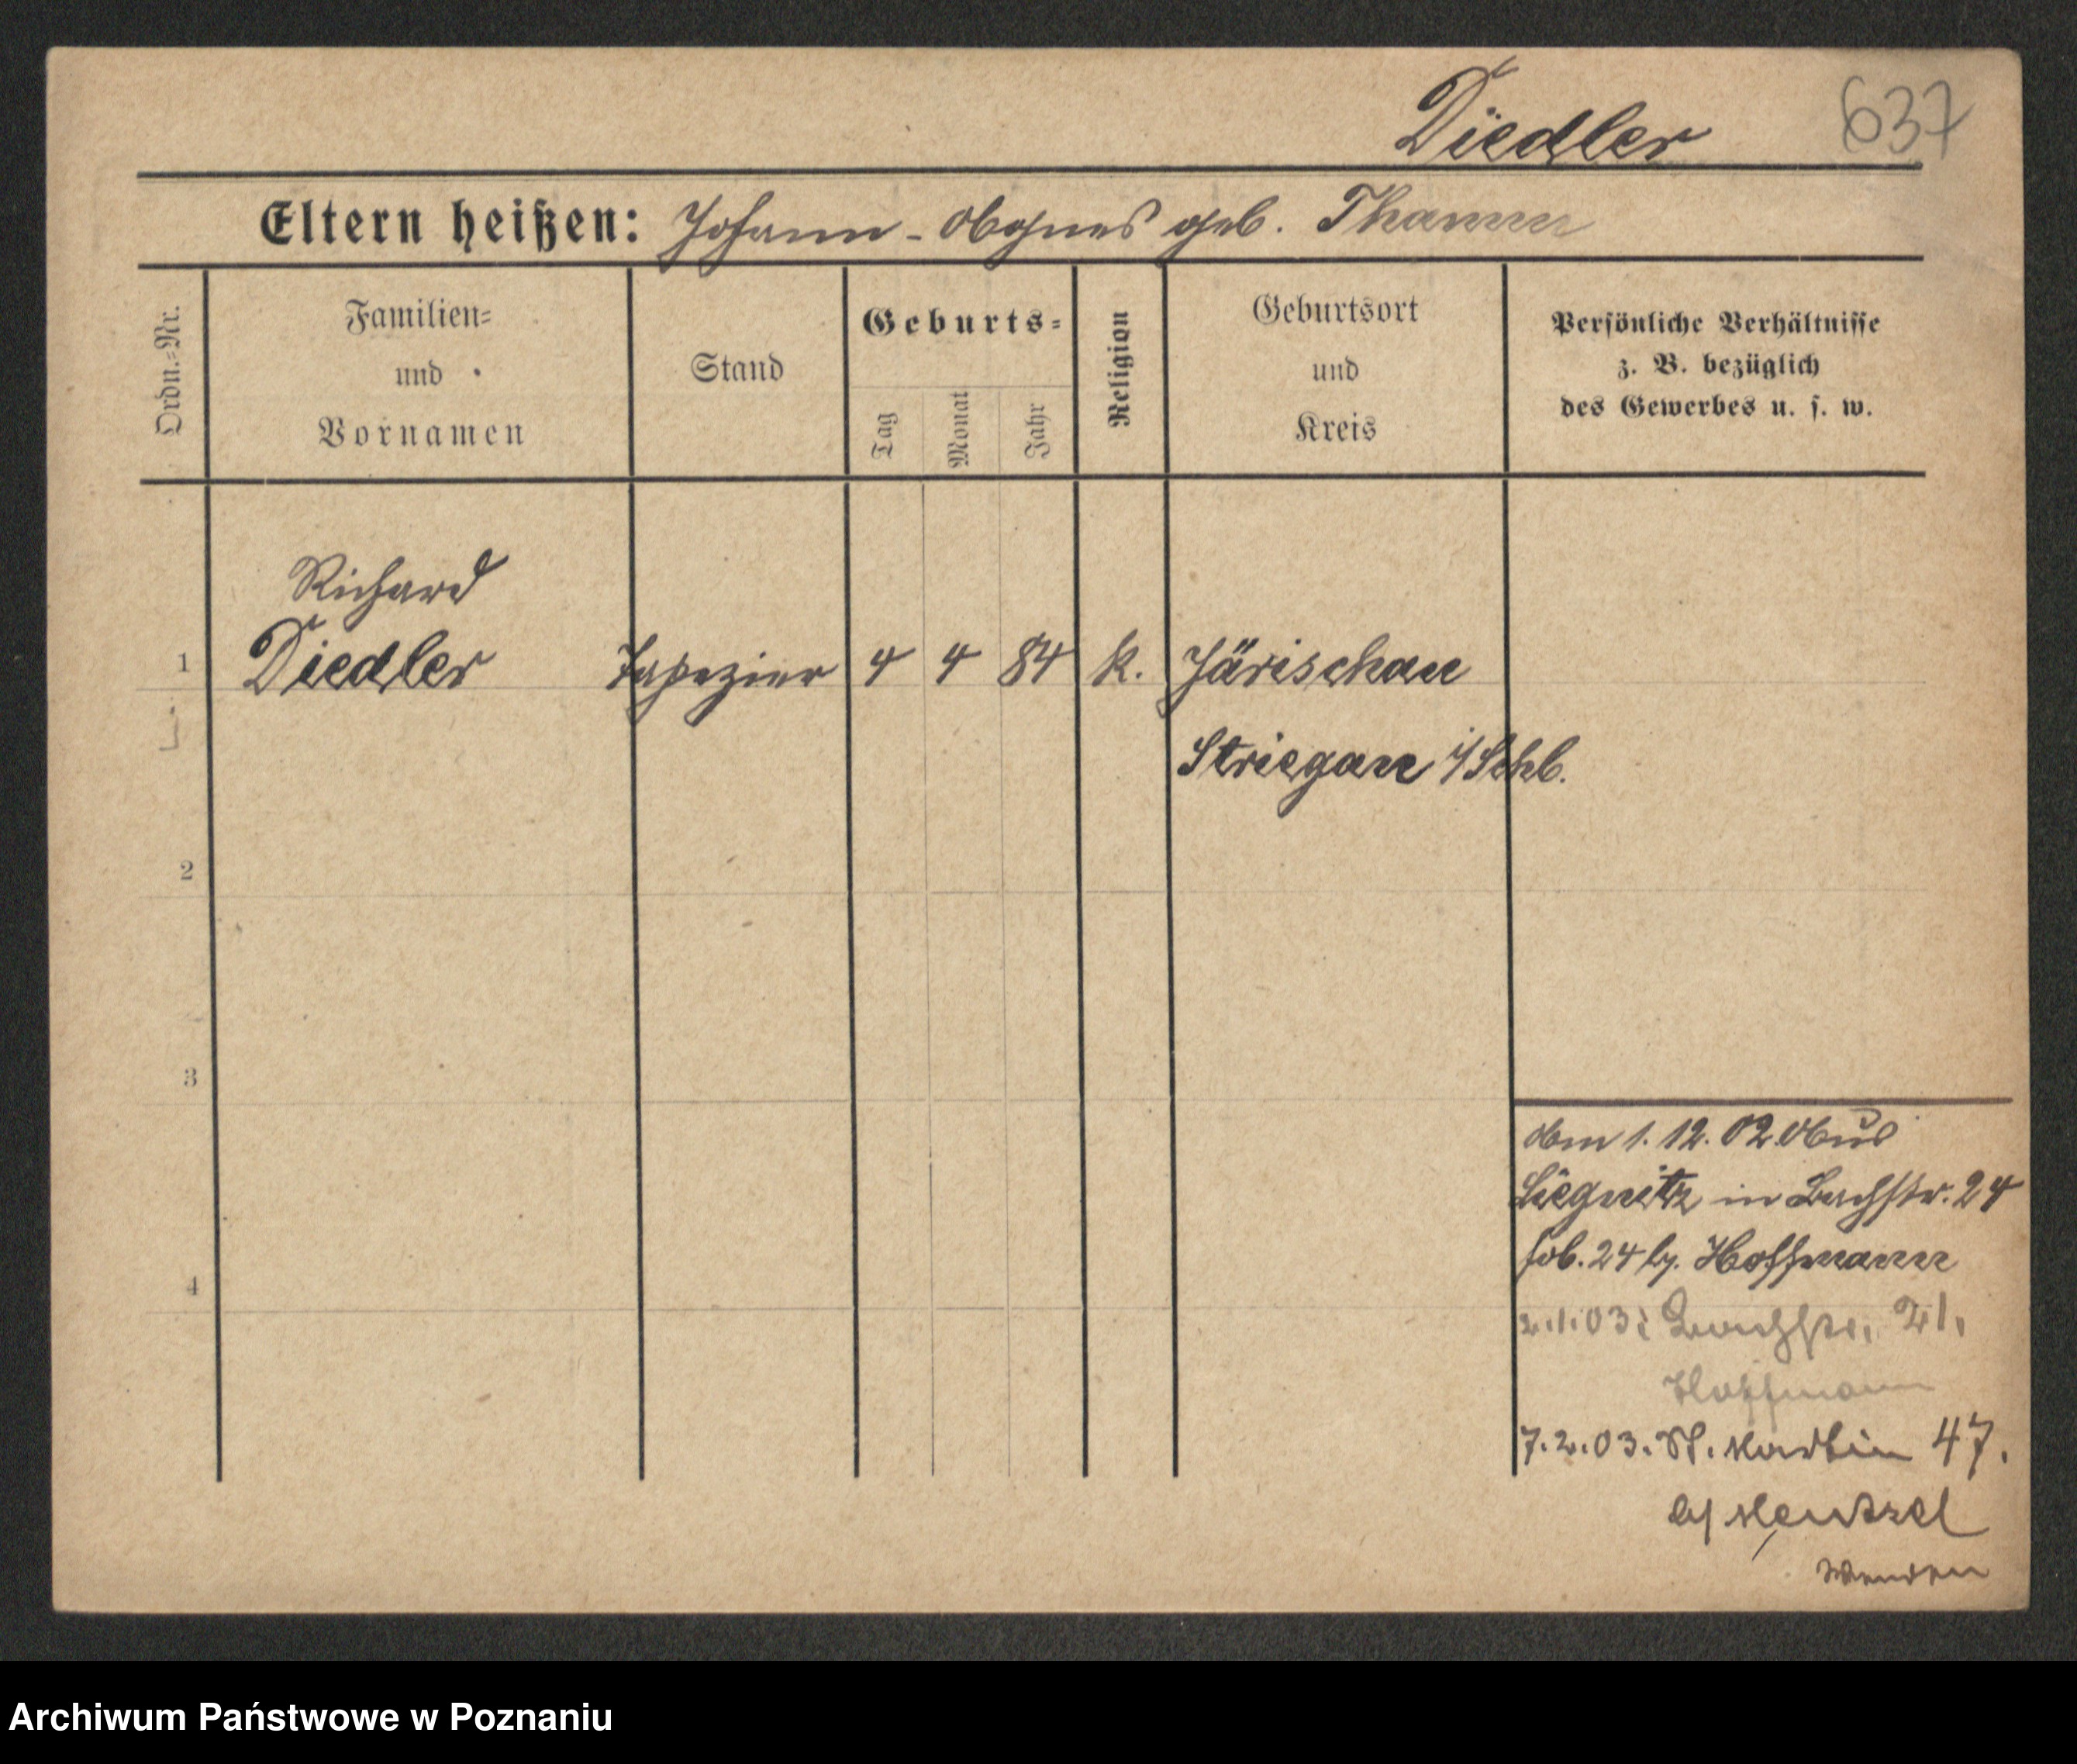 Diedler 637
Eltern heißen: Johann - Agnes geb. Thamm
Ordn.=Nr.
Familien=
und
Vornamen
Stand
Geburts=
Tag
Monat
Jahr
Religion
Geburtsort
und
Kreis
Persönliche Verhältnisse
z. B. bezüglich
des Gewerbes u. s. w.
Richard
1 Diedler Tapezier 4 4 84 k. Järischau
Striegau i/Schl.
2
3
4
Am 1. 12. 02 Aus
Liegnitz in Bachstr. 24
24 Hoffmann
2.1.03: 21.
Hoffmann
7.2.03. St. Martin 47.
b/ Mentzel
Wenden
Archiwum Państwowe w Poznaniu